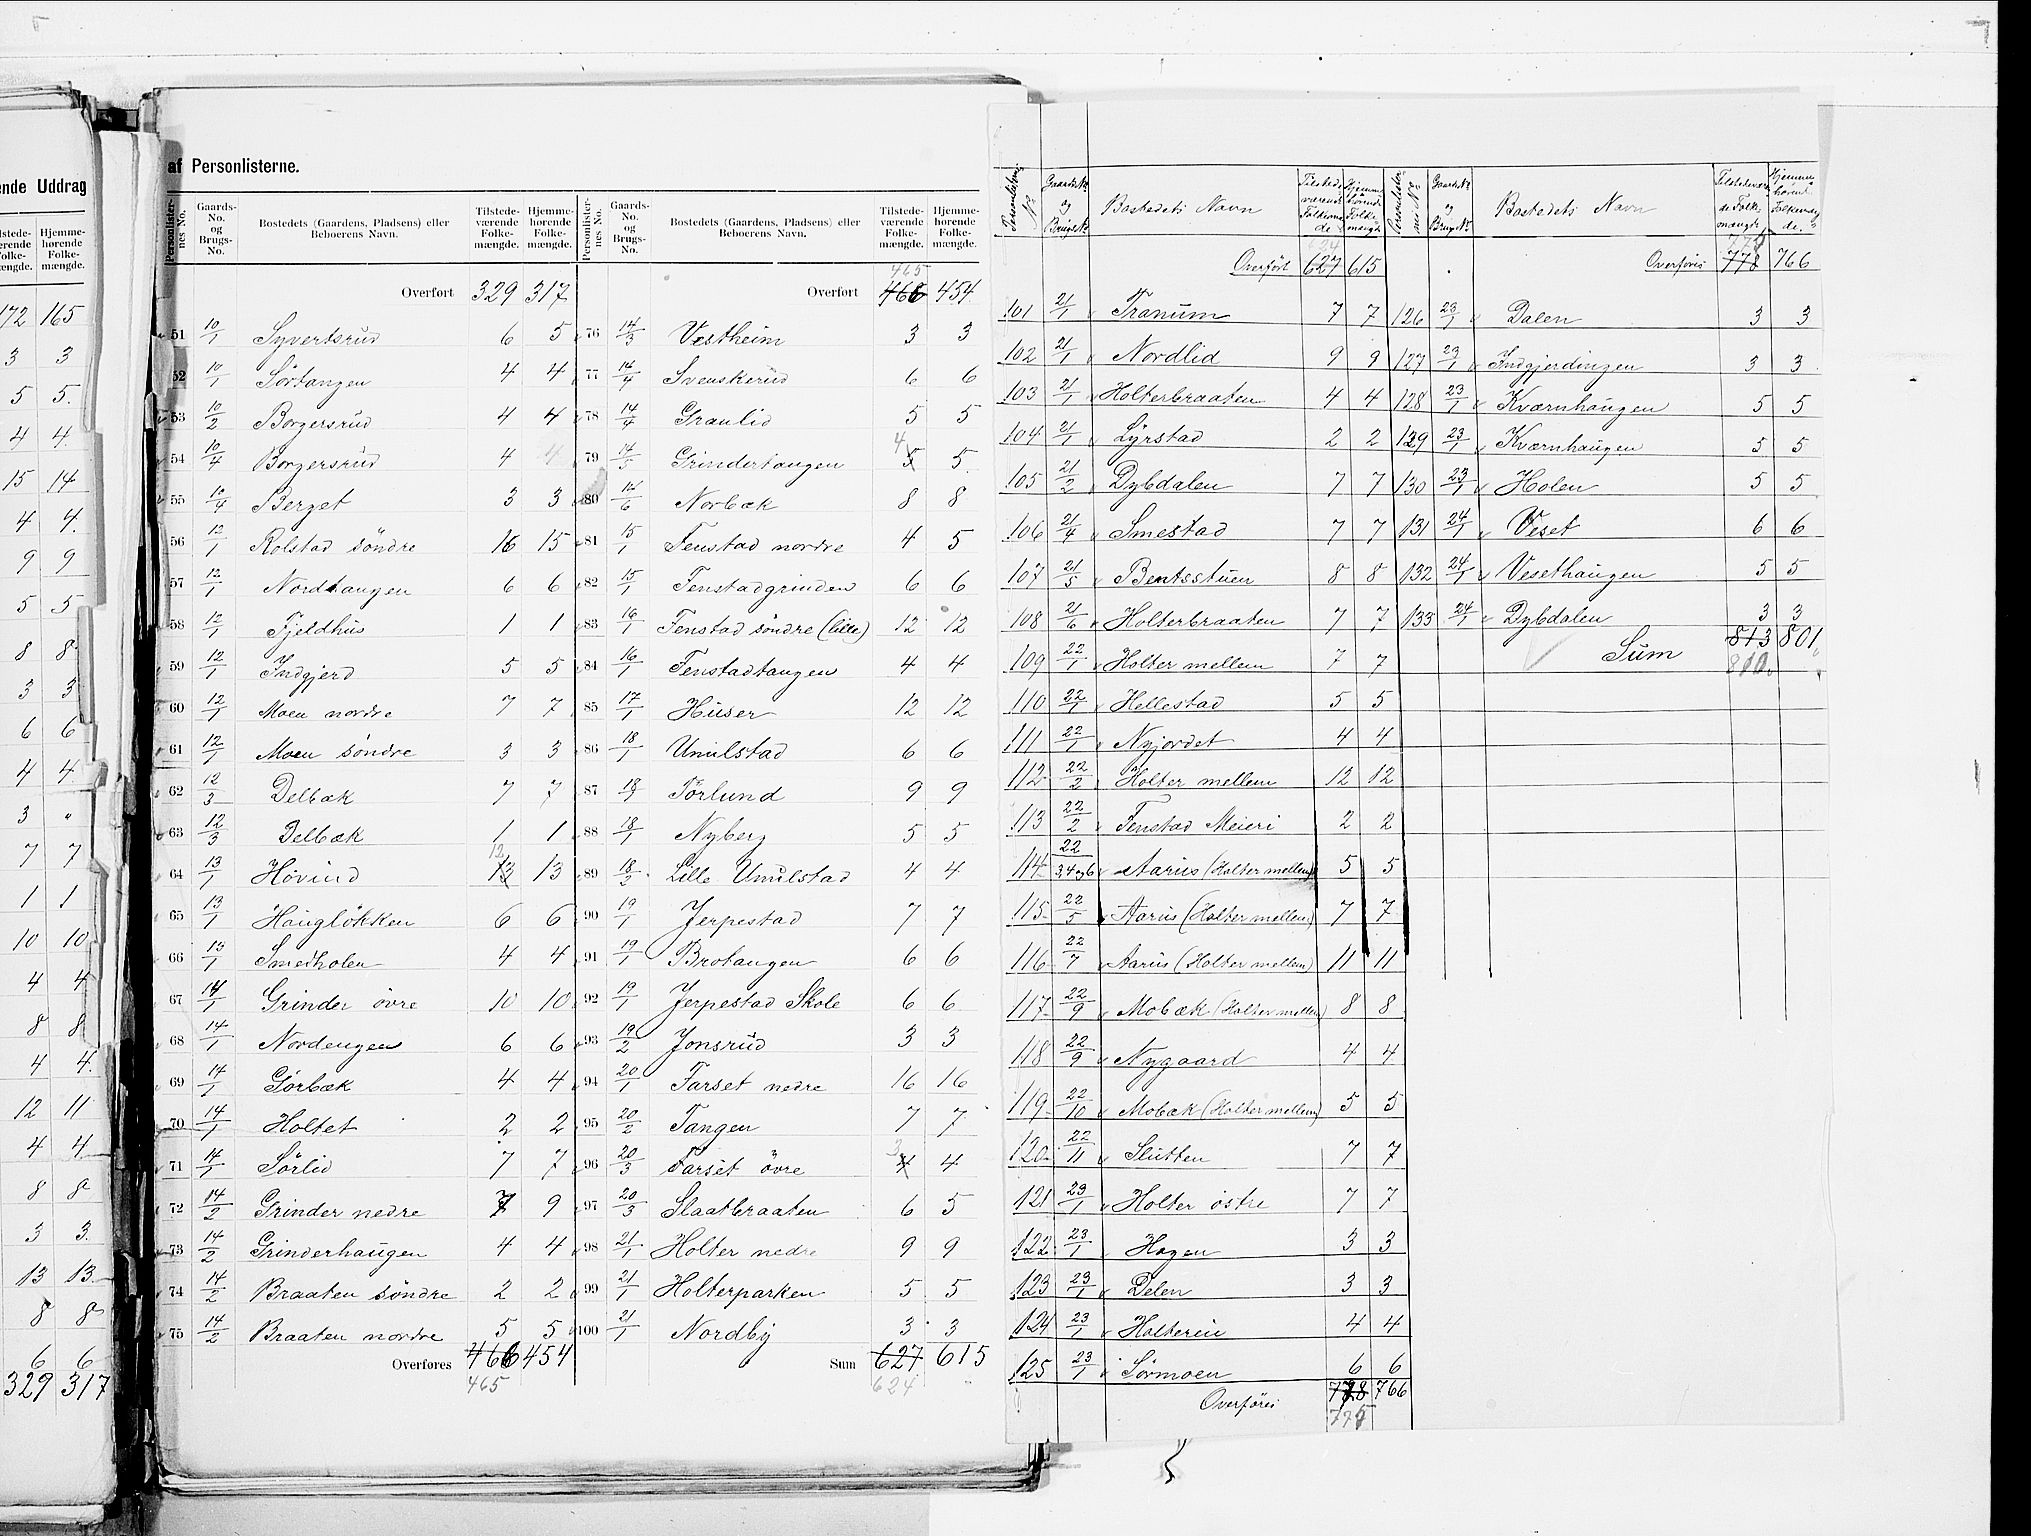 ende Uddrag
lstede- Hjemme-
ærende hørende
Folke- Folke-
ængde. mængde.
172 165
3 3
5 5.
4 4.
15 14
4 4.
9 9
5 5
8 8
3 3
6 6
4 4
3 "
7 7
1 1
10 10
4 4
8 8
4 4.
12 11
4 4
8 8
3 3.
13 13
8 8
6 6
329 317
af Personlisterne.
Personlister-nes No. Gaards-No. og Brugs-No. Bostedets (Gaardens, Pladsens) eller Beboerens Navn. Tilstede-værende Folke-mængde. Hjemme-hørende Folke-mængde.
Overført 329 317
51 10/1 Syvertsrud 6 5
52 10/1 Sörtangen 4 4
53 10/2 Borgersrud 4 4
54 10/4 Borgersrud 4 4
55 10/4 Berget 3 3
56 12/1 Rolstad söndre 16 15
57 12/1 Nordtangen 6 6
58 12/1 Fjeldhus 1 1
59 12/1 Indgjerd 5 5
60 12/1 Moen nordre 7 7
61 12/1 Moen söndre 3 3
62 12/3 Delbæk 7 7
63 12/3 Delbæk 1 1
64 13/1 Hovind 13 12 13
65 13/1 Hauglökken 6 6
66 13/1 Smedholen 4 4
67 14/1 Grinder övre 10 10
68 14/1 Nordengen 6 6
69 14/1 Görbæk 4 4
70 14/1 Holtet 2 2
71 14/1 Sörlid 7 7
72 14/2 Grinder nedre 9
73 14/2 Grinderhaugen 4 4
74 14/2 Braaten söndre 2 2
75 14/2 Braaten nordre 5 5
Overføres 466 454
465
Personlister-nes No. Gaards-No. og Brugs-No. Bostedets (Gaardens, Pladsens) eller Beboerens Navn. Tilstede-værende Folke-mængde. Hjemme-hørende Folke-mængde.
465
Overført 466 454
76 14/3 Vestheim 3 3
77 14/4 Svenskerud 6 6
78 14/4 Granlid 5 5
79 14/5 Grindertangen 5 4 5
80 14/6 Norbæk 8 8
81 15/1 Fenstad nordre 4 5
82 15/1 Fenstadgrinden 6 6
83 16/1 Fenstad söndre (lille) 12 12
84 16/1 Fenstadtangen 4 4
85 17/1 Huser 12 12
86 18/1 Unulstad 6 6
87 18/1 Förlund 9 9
88 18/1 Nyberg 5 5
89 18/2 Lille Unulstad 4 4
90 19/1 Jerpestad 7 7
91 19/1 Brotangen 6 6
92 19/1 Jerpestad Skole 6 6
93 19/2 Jonsrud 3 3
94 20/1 Farset nedre 16 16
95 20/2 Tangen 7 7
96 20/3 Farset övre 4 3 4
97 20/3 Slaatbraaten 6 5
98 21/1 Holter nedre 9 9
99 21/1 Holterparken 5 5
100 21/1 Nordby 3 3
Sum 627 615
624
Gaards No og Brugs No Bostedets Navn Tilstedeværende Folkemængde Hjemmehörende Folkemængde
624
Overfört 627 615
101 21/1 Tranum 7 7
102 21/1 Nordlid 9 9
103 21/1 Holterbraaten 4 4
104 21/1 Lyrstad 2 2
105 21/2 Dybdalen 7 7
106 21/4 Smestad 7 7
107 21/5 Bentsstuen 8 8
108 21/6 Holterbraaten 7 7
109 22/1 Holter mellem 7 7
110 22/1 Hellestad 5 5
111 22/1 Nyjordet 4 4
112 22/2 Holter mellem 12 12
113 22/2 Fenstad Meieri 2 2
114 22/3,4 og 6 Aarus (Holter mellem) 5 5
115 22/5 Aarus (Holter mellem) 7 7
116 22/7 Aarus (Holter mellem) 11 11
117 22/9 Mobæk (Holter mellem) 8 8
118 22/9 Nygaard 4 4
119 22/10 Mobæk (Holter mellem) 5 5
120 22/11 Slutten 7 7
121 23/1 Holter östre 7 7
122 23/1 Hagen 3 3
123 23/1 Delen 3 3
124 23/1 Holtereie 4 4
125 23/1 Sörmoen 6 6
Overföres 778 766
775
Gaards No og Brugs No Bostedets Navn
775
Overföres 778 766
126 23/1 Dalen 3 3
127 23/1 Indgjerdingen 3 3
128 23/1 Kværnhaugen 5 5
129 23/1 Kværnhaugen 5 5
130 23/1 Holen 5 5
131 24/1 Veset 6 6
132 24/1 Vesethaugen 5 5
133 24/1 Dybdalen 3 3
Sum 813 801
810